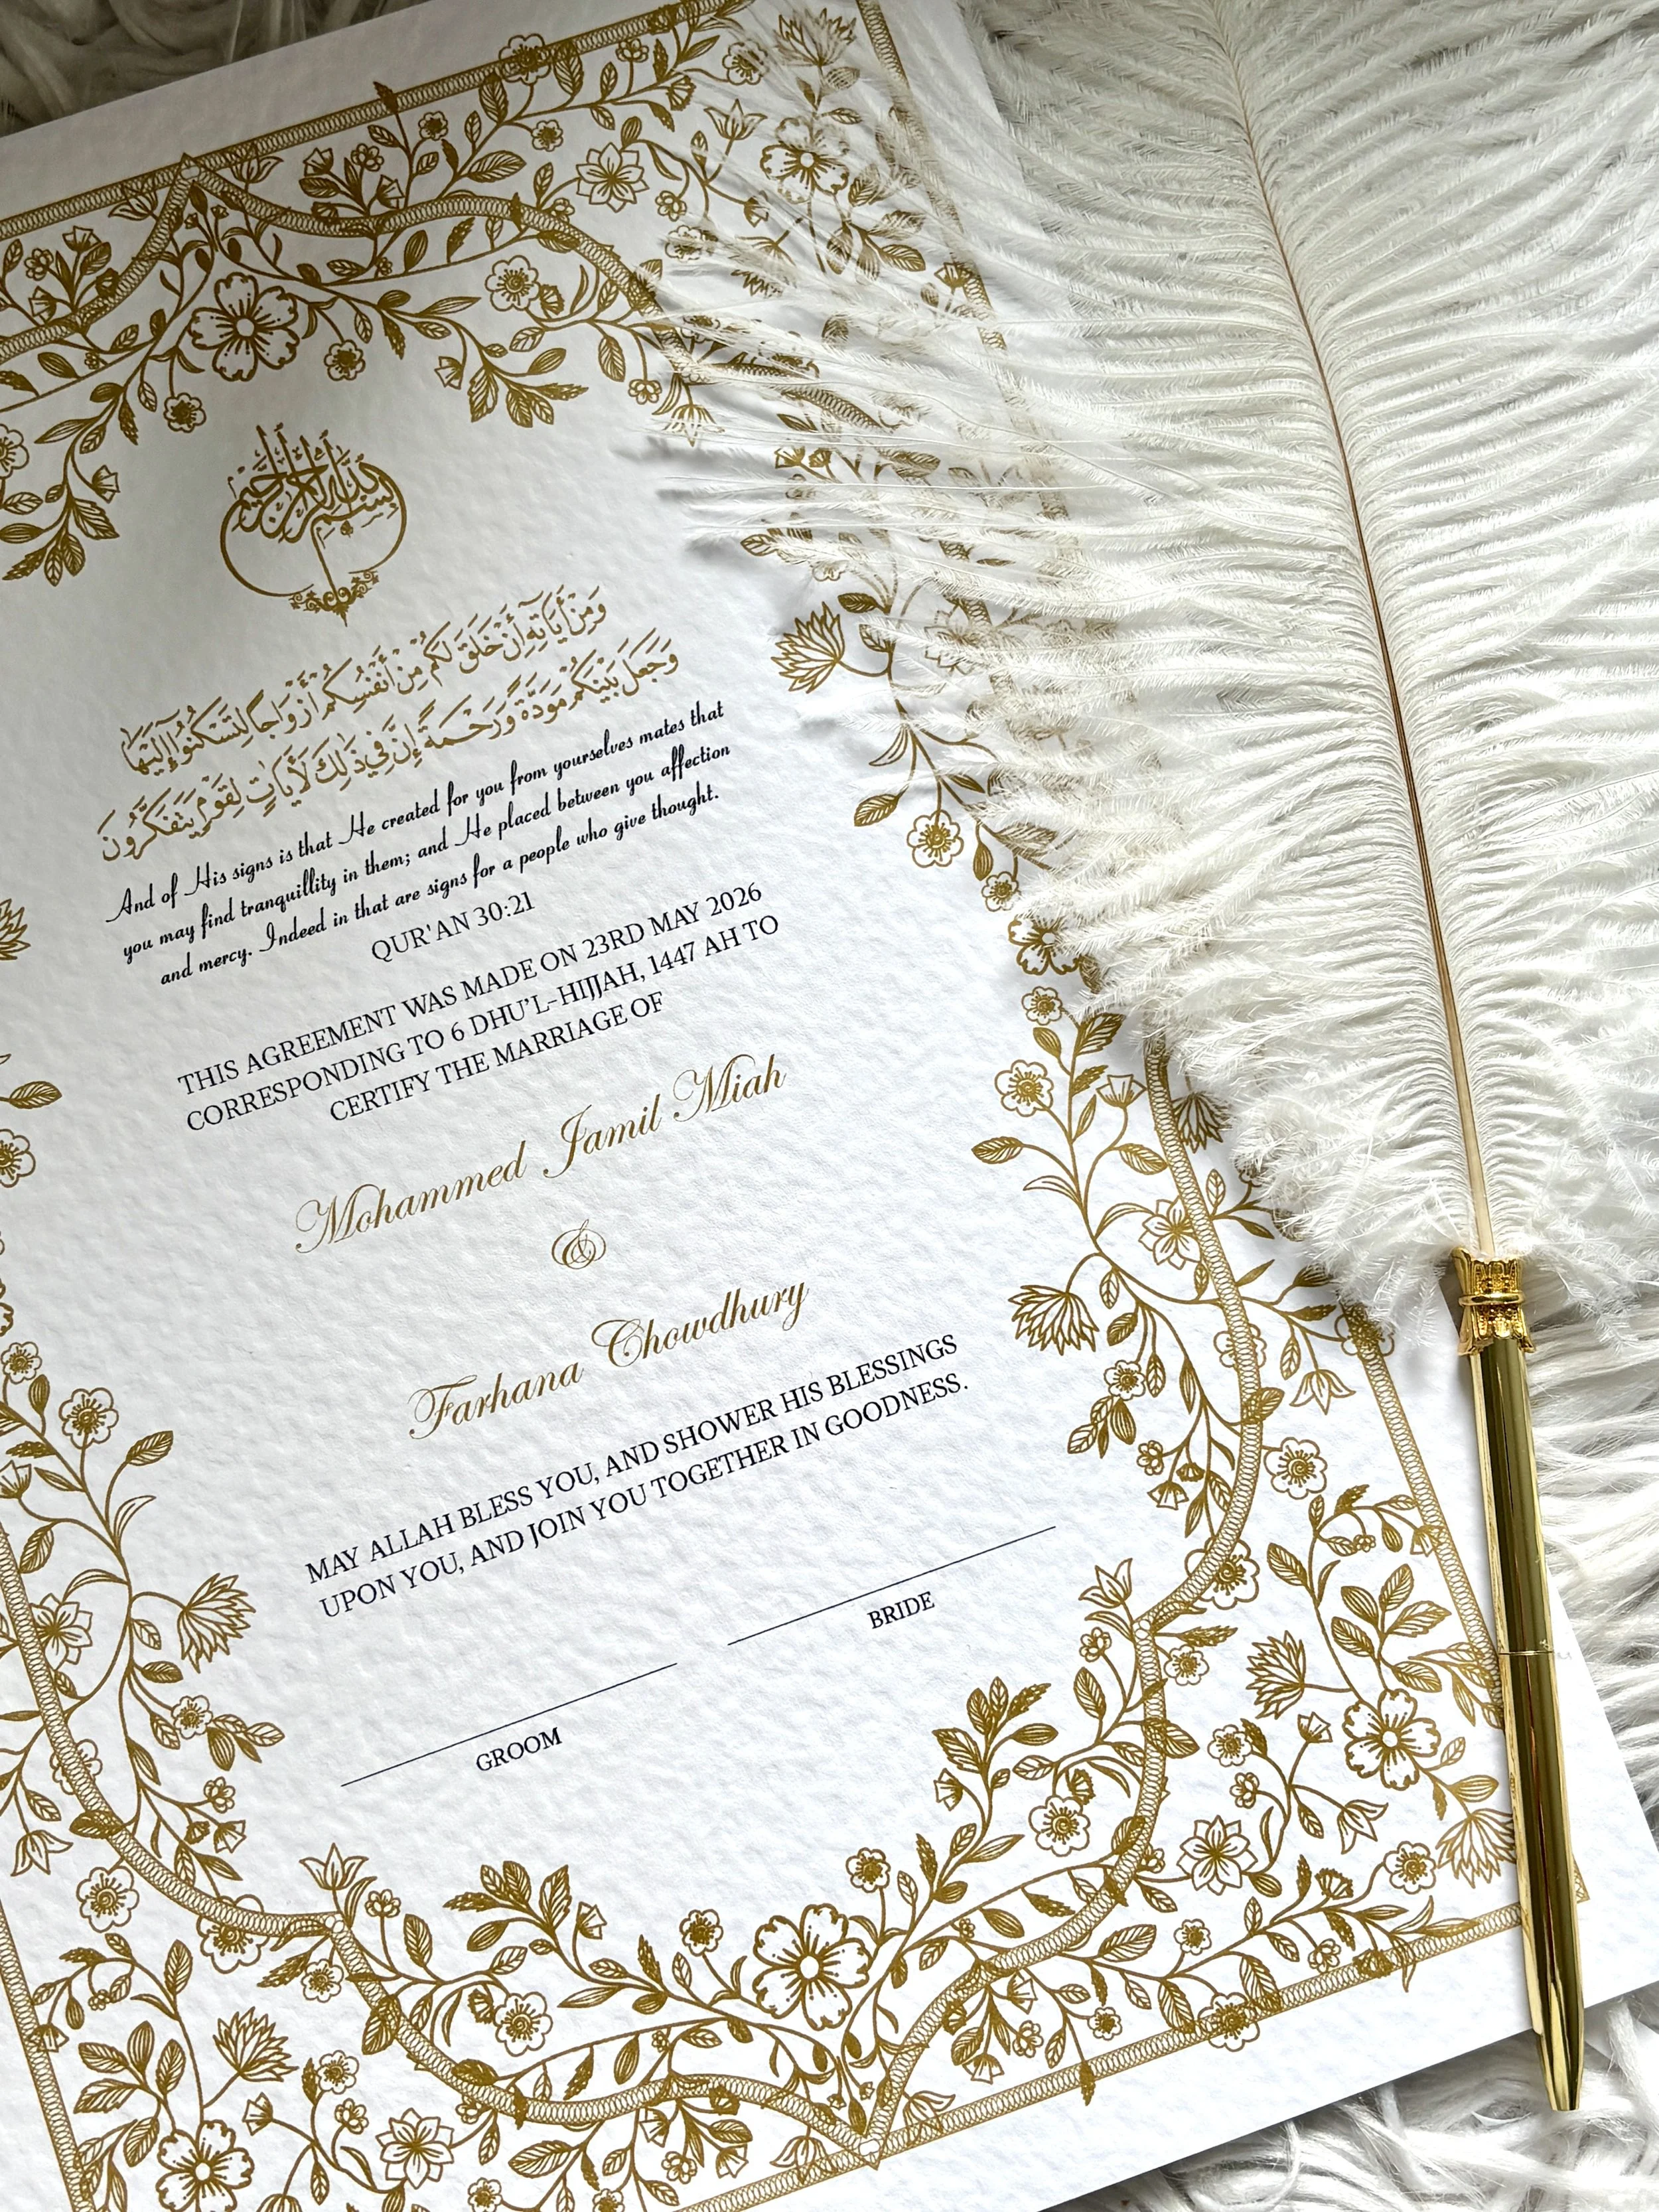 بسم الله الرحمن الرحيم
وَمِنْ أَيَاتِهِ أَنْ خَلَقَ لَكُم مِنْ أَنْفُسِكُمْ أَزْوَاجًا لِتَسْكُنُوا إِلَيْهَا
وَجَعَلَ بَيْنَكُم مَوَدَّةً وَرَحْمَةً إِنَّ فِي ذَلِكَ لَأَيَاتٍ لِقَوْمٍ يَتَفَكَّرُونَ
And of His signs is that He created for you from yourselves mates that
you may find tranquillity in them; and He placed between you affection
and mercy. Indeed in that are signs for a people who give thought.
QUR'AN 30:21
THIS AGREEMENT WAS MADE ON 23RD MAY 2026
CORRESPONDING TO 6 DHU'L-HIJJAH, 1447 AH TO
CERTIFY THE MARRIAGE OF
Mohammed Jamil Miah
&
Farhana Chowdhury
MAY ALLAH BLESS YOU, AND SHOWER HIS BLESSINGS
UPON YOU, AND JOIN YOU TOGETHER IN GOODNESS.
GROOM
BRIDE